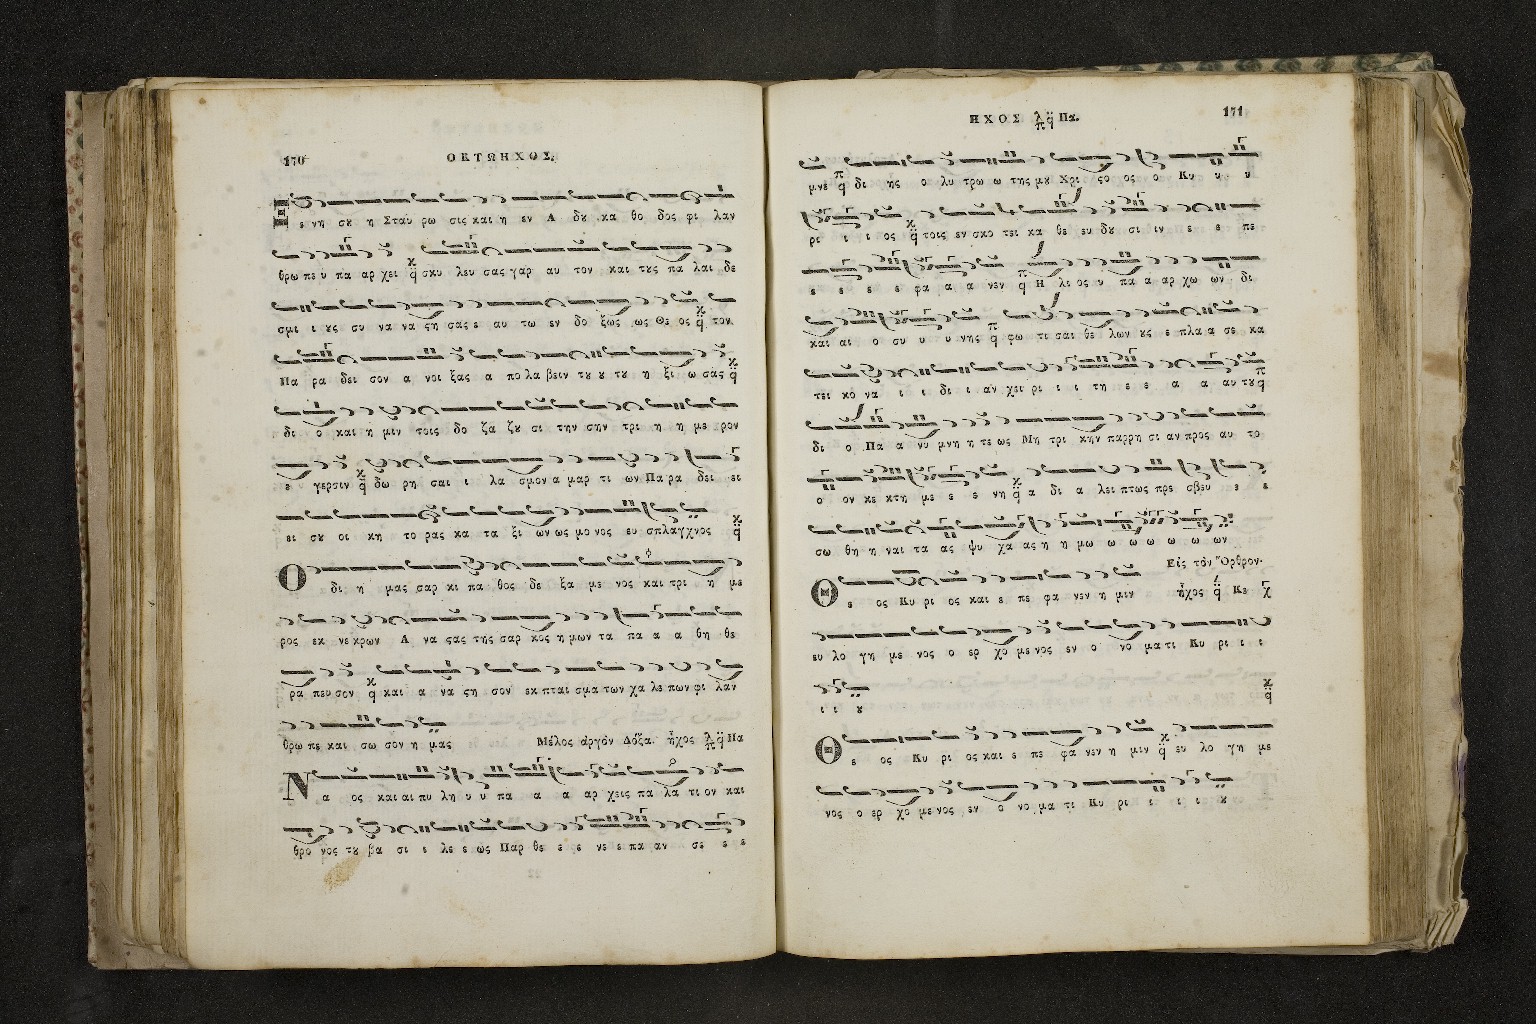 170
ΟΚΤΩΗΧΟΣ.
ε νη σȣ η Σταυ ρω σις και η εν Α δȣ κα θο δος φι λαν
θρω πε υ πα αρ χει σκυ λευ σας γαρ αυ τον και τȣς πα λαι δε
σμι ι ȣς συ να να ϛη σας ε αυ τω εν δο ξως ως Θε ος τον
Πα ρα δει σον α νοι ξας α πο λα βειν τȣ ȣ τȣ η ξι ω σας
δι ο και η μιν τοις δο ξα ζȣ σι την σην τρι η η με ρον
ε γερσιν δω ρη σαι ι λα σμον α μαρ τι ων Πα ρα δει ει
ει σȣ οι κη το ρας κα τα ξι ων ως μο νος ευ σπλαγχνος
Ο δι η μας σαρ κι πα θος δε ξα με νος και τρι η με
ρος εκ νε κρων Α να ϛας της σαρ κος η μων τα πα α α θη θε
ρα πευ σον και α να ϛη σον εκ πται σμα των χα λε πων φι λαν
θρω πε και σω σον η μας Μέλος ἀργὸν Δόξα. ἦχος λ π q Πα
Ν α ος και αι πυ λη υ υ πα α α αρ χεις πα λα τι ον και
θρο νος τȣ βα σι ι λε ε ως Παρ θε ε ε νε ε πα αν σε ε ε
ΗΧΟΣ λ π q Πα.
171
μνε δι ης ο λυ τρω ω της μȣ Χρι ϛο ος ο Κυ υ υ
ρι ι ι ος τοις εν σκο τει κα θε ευ δȣ σι ιν ε ε πε
ε ε ε ε φα α α νεν Η λι ος υ πα α αρ χω ων δι
και αι ο συ υ υ νης φω τι σαι θε λων ȣς ε πλα α σε κα
τει κο να ι ι δι ι αν χει ρι ι ι τη ε ε α α αυ τȣ
δι ο Πα α νυ μνη η τε ως Μη τρι κην παρρη σι αν προς αυ το
ο ον κε κτη με ε ε νη α δι α λει πτως πρε σβευ ε ε
σω θη η ναι τα ας ψυ χα ας η η μω ω ω ω ω ω ων
Εἰς τὸν Ὄρθρον.
Θ ε ος Κυ ρι ος και ε πε φα νεν η μιν ἦχος q Κε
ευ λο γη με νος ο ερ χο με νος εν ο νο μα τι Κυ ρι ι ι
ι ι ȣ
Θ ε ος Κυ ρι ος και ε πε φα νεν η μιν ευ λο γη με
νος ο ερ χο με νος εν ο νο μα τι Κυ ρι ι ι ι